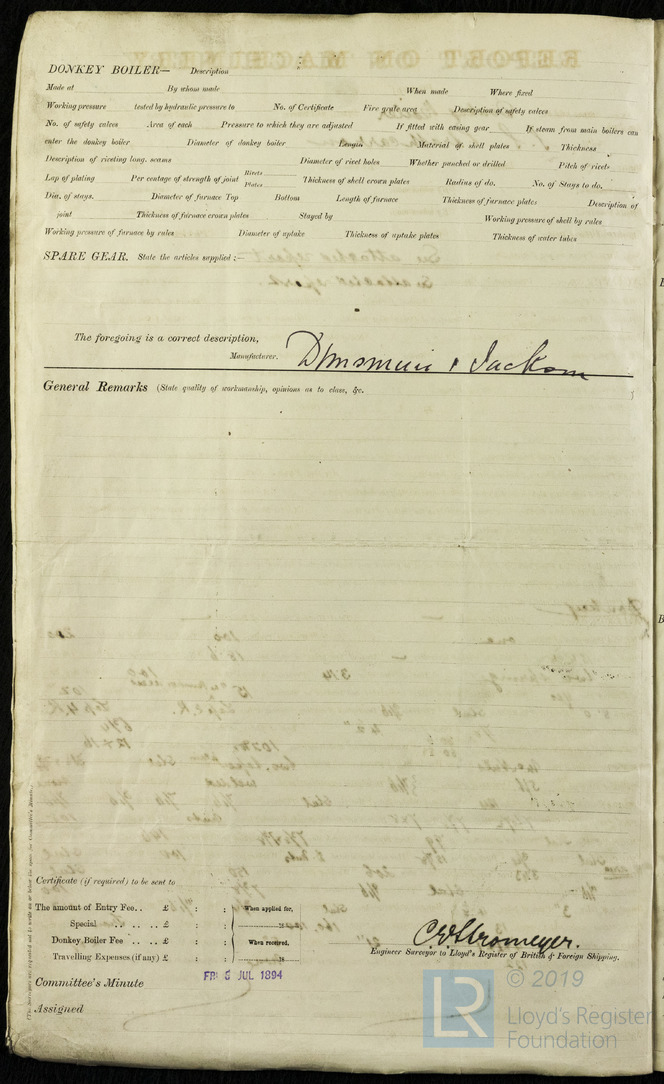 DONKEY BOILER— Description
Made at By whom made When made Where fixed
Working pressure tested by hydraulic pressure to No. of Certificate Fire grate area Description of safety valves
No. of safety valves Area of each Pressure to which they are adjusted If fitted with easing gear If steam from main boilers can
enter the donkey boiler Diameter of donkey boiler Length Material of shell plates Thickness
Description of riveting long. seams Diameter of rivet holes Whether punched or drilled Pitch of rivets
Lap of plating Per centage of strength of joint Rivets Plates Thickness of shell crown plates Radius of do. No. of Stays to do.
Dia. of stays. Diameter of furnace Top Bottom Length of furnace Thickness of furnace plates Description of
joint Thickness of furnace crown plates Stayed by Working pressure of shell by rules
Working pressure of furnace by rules Diameter of uptake Thickness of uptake plates Thickness of water tubes
SPARE GEAR. State the articles supplied :—
The foregoing is a correct description,
Manufacturer. Dunsmuir & Jackson
General Remarks (State quality of workmanship, opinions as to class, &c.
Certificate (if required) to be sent to
The amount of Entry Fee.. £ : : When applied for,
Special .. .. .. £ : : 18
Donkey Boiler Fee .. .. £ : : When received,
Travelling Expenses (if any) £ : : 18
C. E. Stromeyer.
Engineer Surveyor to Lloyd's Register of British & Foreign Shipping.
FRI 6 JUL 1894
Committee's Minute
Assigned
© 2019
LR
Lloyd's Register
Foundation